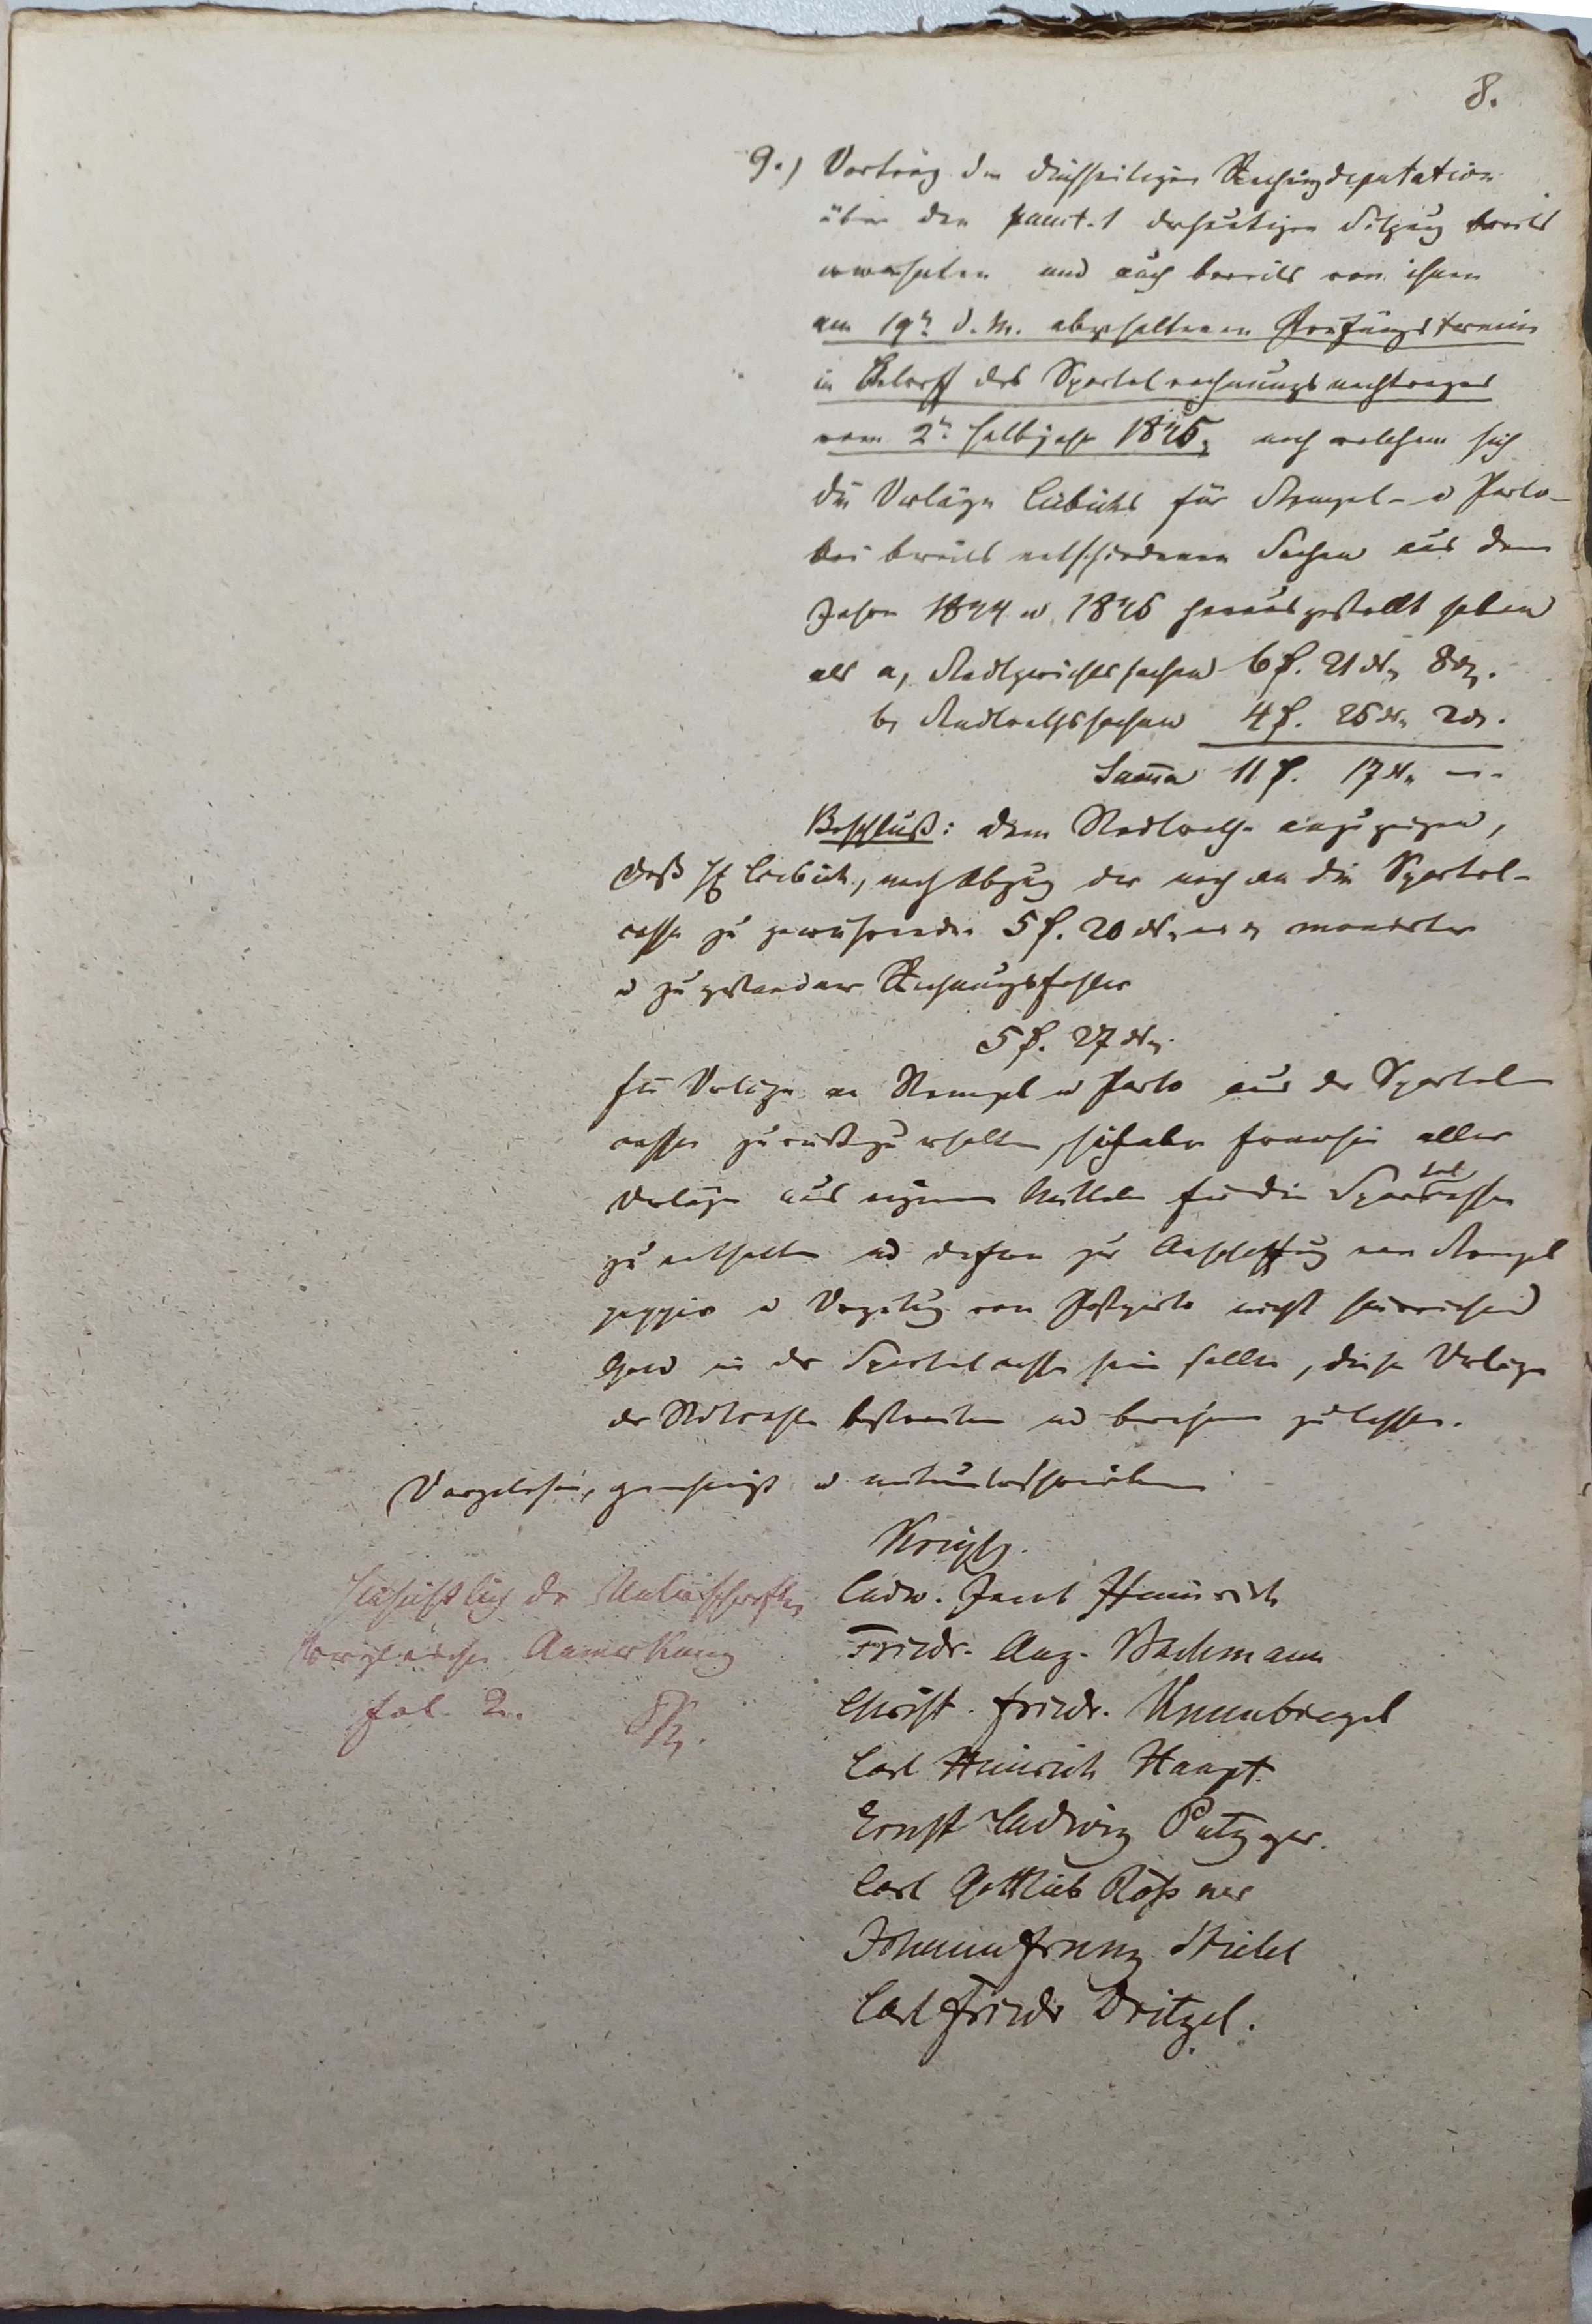 8.
9.) Vortrag der diesseitigen Rechnungsdeputation
über den punct. 1 der heutigen Sitzung bereits
erwähnten und auch bereits von ihnen
am 19n d. M. abgehaltenen Prüfungstermin
in Betreff des Sportelrechnungsnachtrages
vom 2n Halbjahr 1845, nach welchem sich
die Verläge Liebichs für Stempel- u Porto-
bei bereits entschiedenen Sachen aus dem
Jahre 1844 u. 1845 herausgestellt haben
als a, Stadtgerichtssachen 6 f. 21 ngr 8 d.
b, Stadtrathssachen 4 f. 25 ngr 2 d.
Summa 11 f. 17 ngr —
Beschluß: dem Stadtrath anzuzeigen,
daß H. Liebich, nach Abzug der noch an die Sportel-
casse zu gewährenden 5 f. 20 ngr monirter
u zugestandner Rechnungsfehler
5 f. 27 ngr
für Verläge an Stempel u Porto aus der Sportel
casse zurückzuerhalten, sich aber fernerhin aller
Verläge aus eigenen Mitteln für die Sportelcasse
zu enthalten und dafern zur Anschaffung von Stempel
papier u Vergütung von Postporto nicht hinreichend
Geld in der Sportelcasse sein sollte, diese Verläge
der Stadtcasse bestreiten und berechnen zu lassen.
Vorgelesen, genehmigt u mitunterschrieben
Ludw. Jacob Heinrich
Friedr. Aug. Bachmann
Christ. Friedr. Knembiegel
Carl Heinrich Haupt.
Ernst Ludwig Putzger.
Carl Gottlieb Rößner
Johann Franz Stiebel
Carl Friedr Dritzel.
Hinsichtlich der Unterschriften
vergleiche Anmerkung
fol. 2.